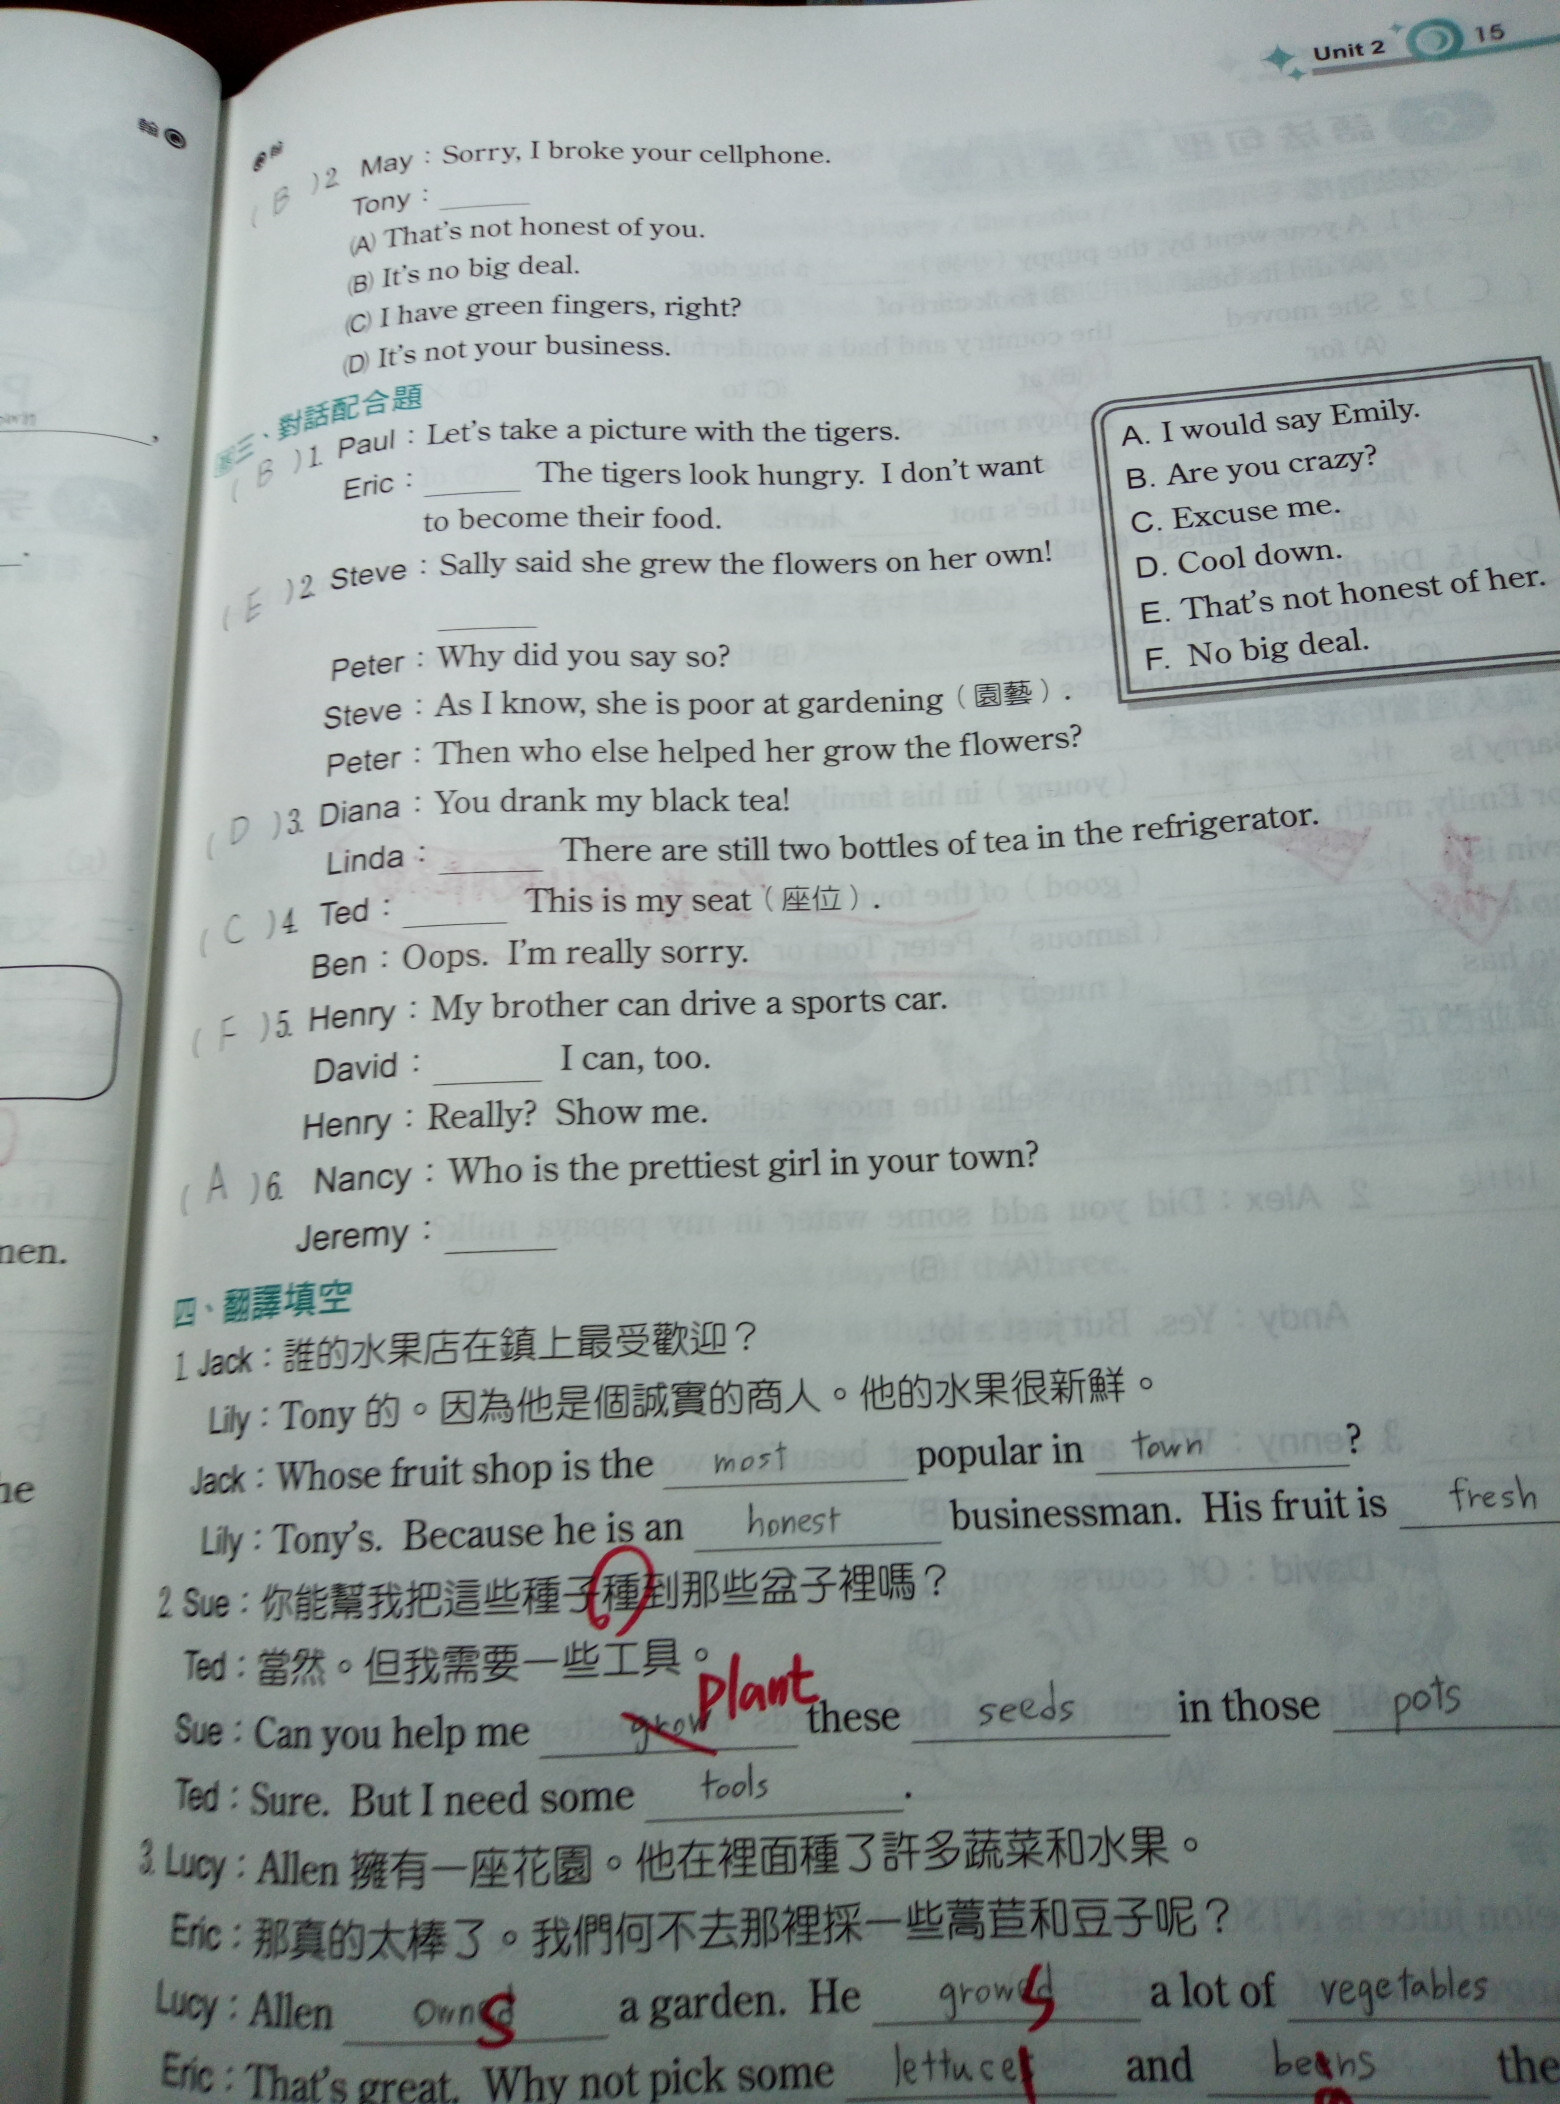 Unit 2 15
( B )2. May：Sorry, I broke your cellphone.
Tony：______
(A) That's not honest of you.
(B) It's no big deal.
(C) I have green fingers, right?
(D) It's not your business.
三、對話配合題
( B )1. Paul：Let's take a picture with the tigers.
Eric：______ The tigers look hungry. I don't want
to become their food.
( E )2. Steve：Sally said she grew the flowers on her own!
______
Peter：Why did you say so?
Steve：As I know, she is poor at gardening（園藝）.
Peter：Then who else helped her grow the flowers?
( D )3. Diana：You drank my black tea!
Linda：______ There are still two bottles of tea in the refrigerator.
( C )4. Ted：______ This is my seat（座位）.
Ben：Oops. I'm really sorry.
( F )5. Henry：My brother can drive a sports car.
David：______ I can, too.
Henry：Really? Show me.
( A )6. Nancy：Who is the prettiest girl in your town?
Jeremy：______
A. I would say Emily.
B. Are you crazy?
C. Excuse me.
D. Cool down.
E. That's not honest of her.
F. No big deal.
四、翻譯填空
1. Jack：誰的水果店在鎮上最受歡迎？
Lily：Tony 的。因為他是個誠實的商人。他的水果很新鮮。
Jack：Whose fruit shop is the most popular in town?
Lily：Tony's. Because he is an honest businessman. His fruit is fresh
2. Sue：你能幫我把這些種子種到那些盆子裡嗎？
Ted：當然。但我需要一些工具。
plant
Sue：Can you help me grow these seeds in those pots
Ted：Sure. But I need some tools.
3. Lucy：Allen 擁有一座花園。他在裡面種了許多蔬菜和水果。
Eric：那真的太棒了。我們何不去那裡採一些萵苣和豆子呢？
Lucy：Allen owns a garden. He grows a lot of vegetables
Eric：That's great. Why not pick some lettuce and beans the
men.
he